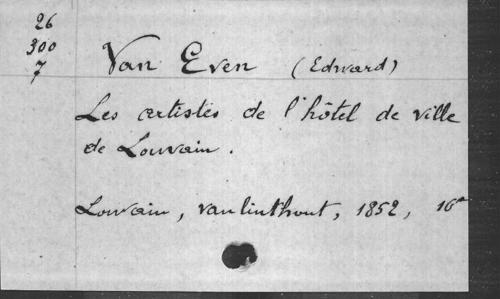 26
300
7
Van Even (Edward)
Les artistes de l'hôtel de ville
de Louvain.
Louvain, vanlinthout, 1852, 16°